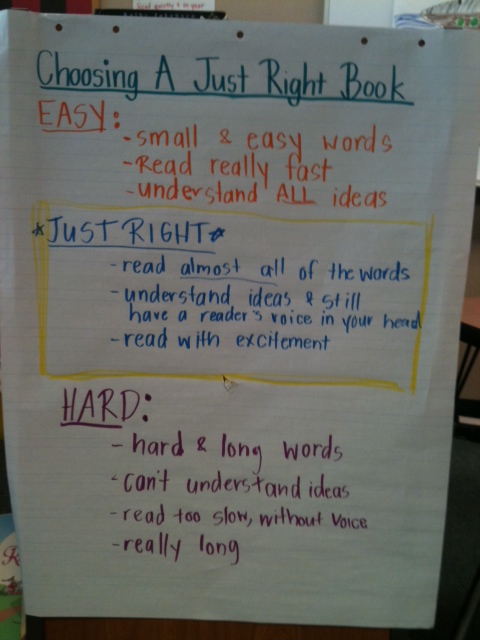 Choosing A Just Right Book
EASY:
-small & easy words
-Read really fast
-understand ALL ideas
*JUST RIGHT*
-read almost all of the words
-understand ideas & still
have a reader's voice in your head
-read with excitement
HARD:
-hard & long words
-can't understand ideas
-read too slow, without voice
-really long